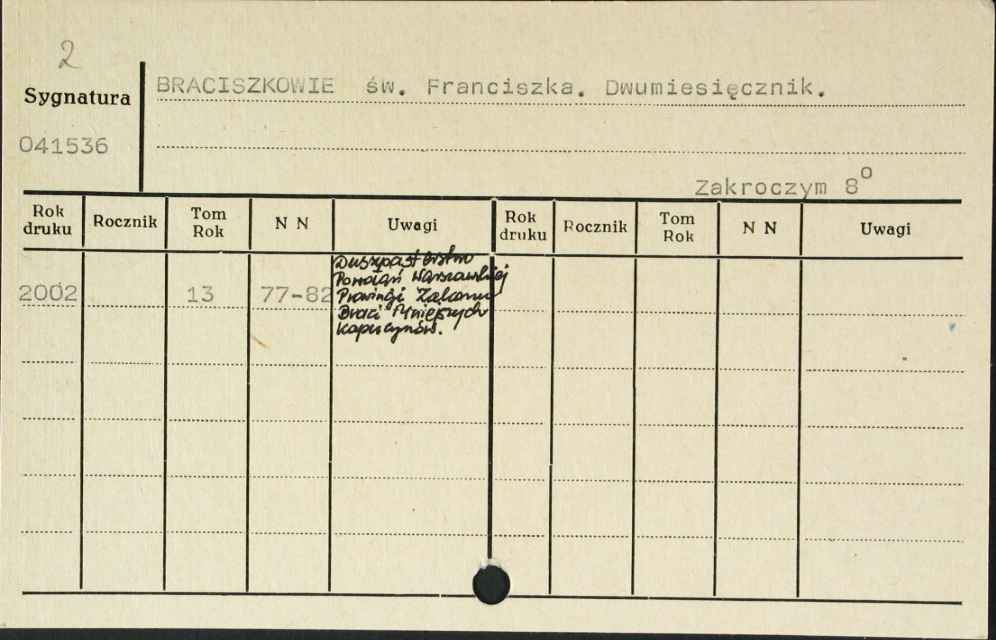 2
BRACISZKOWIE św. Franciszka. Dwumiesięcznik.
Sygnatura
041536
Zakroczym 8°
Rok druku Rocznik Tom Rok N N Uwagi Rok druku Rocznik Tom Rok N N Uwagi
2002 13 77-82
Duszpasterstwo
Powołań Warszawskiej
Prowincji Zakonu
Braci Mniejszych
Kapucynów.